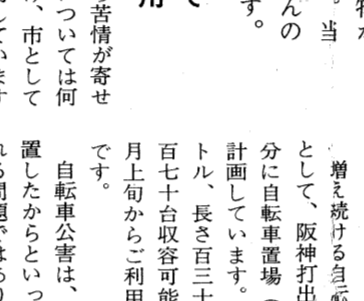 当
んの
す。
苦情が寄せ
ついては何
、市として
しています
増え続ける自転
として、阪神打出
分に自転車置場
計画しています。
トル、長さ百三十
百七十台収容可能
月上旬からご利用
です。
自転車公害は、
置したからといっ
れる問題ではあり